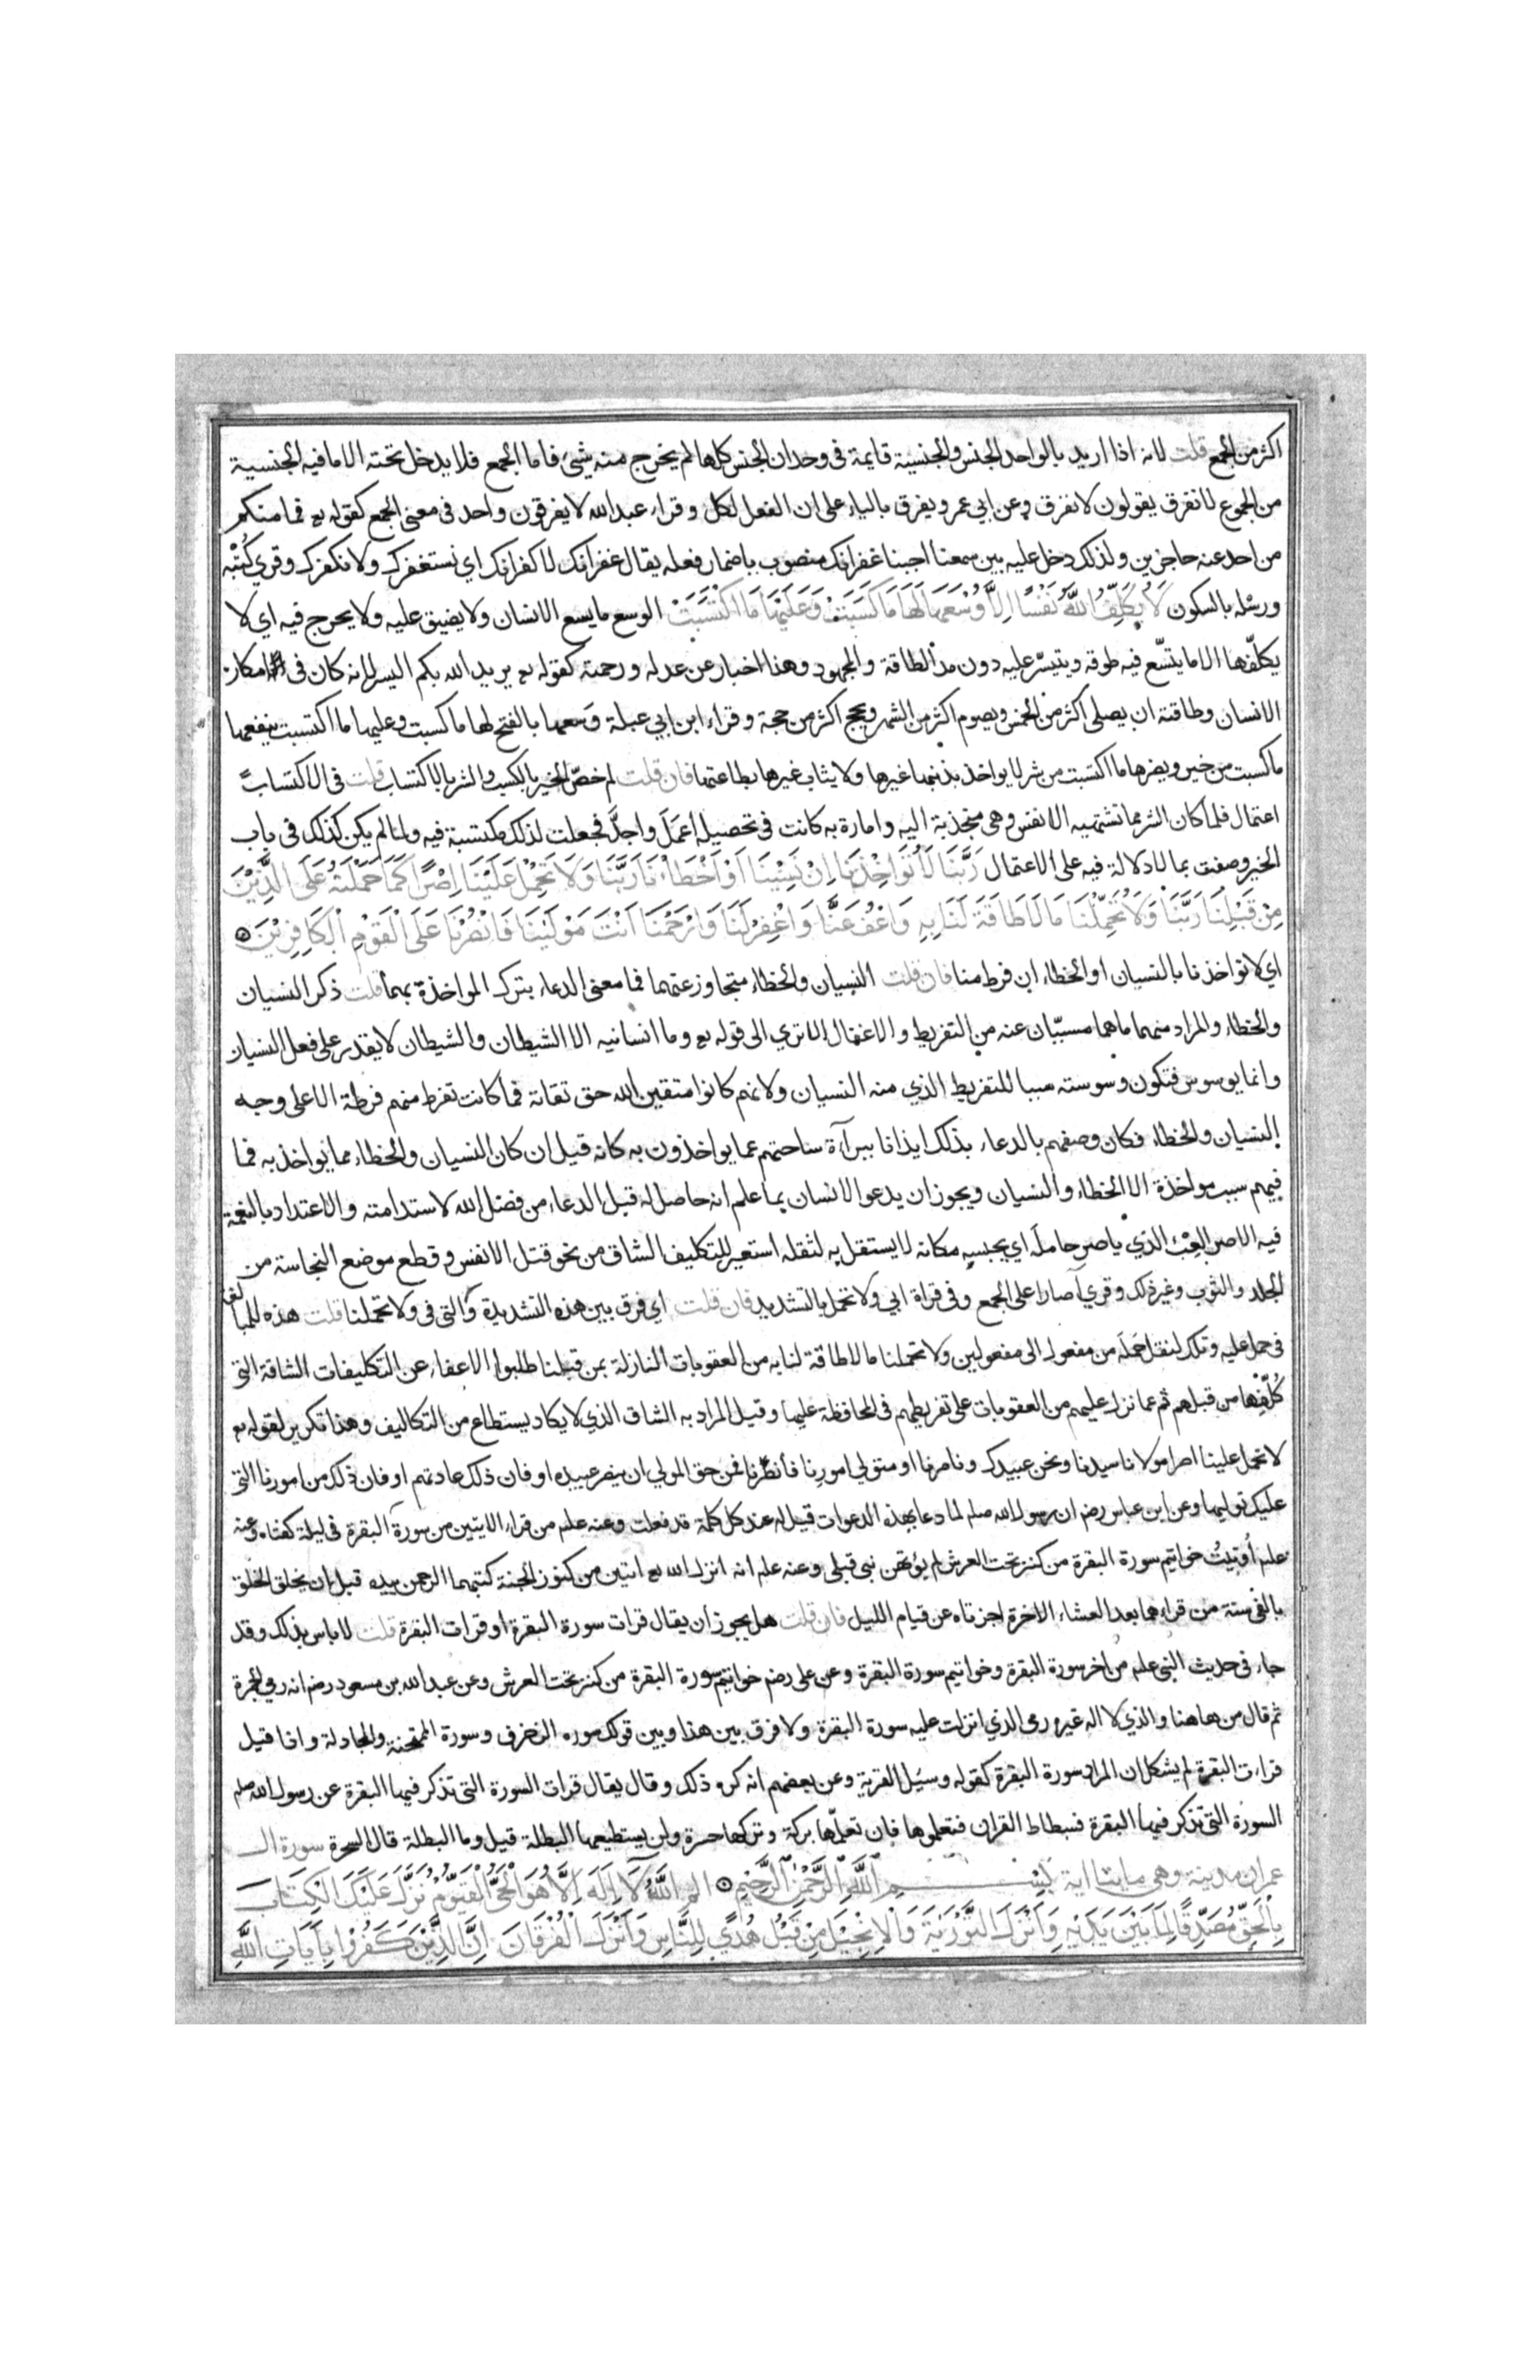 اكثر من الجمع قلت لانه اذا اريد بالواحد الجنس والجنسية قايمة فى وحدان الجنس كلها لم يخرج منه شىء فاما الجمع فلا يدخل تحته الا ما فيه الجنسية
من الجموع لا نفرق يقولون لا نفرق وعن ابي عمرو يفرق بالياء على ان الفعل لكل وقراء عبد الله لا يفرقون واحد فى معنى الجمع كقوله تع فما منكم
من احد عنه حاجزين ولذلك دخل عليه بين سمعنا اجبنا غفرانك منصوب باضمار فعله يقال غفرانك لا كفرانك اي نستغفرك ولا نكفرك وقري كُتْبه
ورسْله بالسكون لَا يُكَلِّفُ اللَّهُ نَفْسًا اِلَّا وُسْعَهَا لَهَا مَا كَسَبَتْ وَعَلَيْهَا مَا اكْتَسَبَتْ الوسع ما يسع الانسان ولا يضيق عليه ولا يحرج فيه اي لا
يكلّفها الا ما يتّسع فيه طوقه ويتيسّر عليه دون مد الطاقة والمجهود وهذا اخبار عن عدله ورحمته كقوله تع يريد الله بكم اليسر لانه كان فى امكان
الانسان وطاقته ان يصلى اكثر من الخمس ويصوم اكثر من الشهر ويحج اكثر من حجة وقراء ابن ابي عبلة وَسعها بالفتح لها ما كسبت وعليها ما اكتسبت ينفعها
ما كسبت من خير ويضرها ما اكتسبت من شر لا يواخذ بذنبها غيرها ولا يثاب غيرها بطاعتها فان قلت لم خصّ الخير بالكسب والشر بالاكتساب قلت فى الاكتساب
اعتمال فلما كان الشر مما تشتهيه الانفس وهى منجذبة اليه وامارة به كانت فى تحصيله اعمَلَ واجدَّ فجعلت لذلك مكتسبة فيه ولما لم يكن كذلك فى باب
الخير وصفت بما لا دلالة فيه على الاعتمال رَبَّنَا لَا تُوَاخِذْنَا اِنْ نَسِيْنَا اَوْ اَخْطَاْنَا رَبَّنَا وَلَا تَحْمِلْ عَلَيْنَا اِصْرًا كَمَا حَمَلْتَهُ عَلَى الَّذِيْنَ
مِنْ قَبْلِنَا رَبَّنَا وَلَا تُحَمِّلْنَا مَا لَا طَاقَةَ لَنَا بِهِ وَاعْفُ عَنَّا وَاغْفِرْ لَنَا وَارْحَمْنَا اَنْتَ مَوْلَيْنَا فَانْصُرْنَا عَلَى الْقَوْمِ الْكَافِرِيْنَ
اي لا تواخذنا بالنسيان او الخطاء ان فرط منا فان قلت النسيان والخطاء متجاوز عنهما فما معنى الدعاء بترك المواخذة بهما قلت ذكر النسيان
والخطاء والمراد منهما ما هما مسبّبان عنه من التفريط والاغفال الا تري الى قوله تع وما انسانيه الا الشيطان والشيطان لا يقدر على فعل النسيان
وانما يوسوس فتكون وسوسته سببا للتفريط الذي منه النسيان ولانهم كانوا متقين الله حق تقاته فما كانت تفرط منهم فرطة الا على وجه
النسيان والخطاء فكان وصفهم بالدعاء بذلك ايذانا ببرآءة ساحتهم عما يواخذون به كانه قيل ان كان النسيان والخطاء مما يواخذ به فما
فيهم سبب مواخذة الا الخطاء والنسيان ويجوز ان يدعو الانسان بما علم انه حاصل له قبل الدعاء من فضل الله لاستدامته والاعتداد بالنعمة
فيه الاصر العِبْء الذي ياصر حامله اي يحبسه مكانه لا يستقل به لثقله استعير للتكليف الشاق من نحو قتل الانفس وقطع موضع النجاسة من
الجلد والثوب وغير ذلك وقري آصارا على الجمع وفى قراة ابي ولا تحمل بالتشديد فان قلت اي فرق بين هذه التشديدة والتى فى ولا تحملنا قلت هذه للمبالغة
فى حمل عليه وتلك لنقل حمله من مفعول الى مفعولين ولا تحملنا ما لا طاقة لنا به من العقوبات النازلة بمن قبلنا طلبوا الاعفاء عن التكليفات الشاقة التى
كُلّفها من قبلهم ثم عما نزل عليهم من العقوبات على تفريطهم فى المحافظة عليها وقيل المراد به الشاق الذي لا يكاد يستطاع من التكاليف وهذا تكرير لقوله تع
لا تحمل علينا اصرا مولانا سيدنا ونحن عبيدك وناصرنا او متولي امورنا فانصرنا فمن حق المولي ان ينصر عبيده او فان ذلك عادتهم او فان ذلك من امورنا التى
عليك توليها وعن ابن عباس رضم ان رسول الله صلم لما دعا بهذه الدعوات قيل له عند كل كلمة قد فعلت وعنه علم من قراء الايتين من سورة البقرة فى ليلة كفتاه وعنه
علم أُوتيتُ خواتيم سورة البقرة من كنز تحت العرش لم يؤتهن نبي قبلى وعنه علم انه انزل الله تع ايتين من كنوز الجنة كتبهما الرحمن بيده قبل ان يخلق الخلق
بالفى سنة من قراءهما بعد العشاء الاخرة اجزتاه عن قيام الليل فان قلت هل يجوز أن يقال قرات سورة البقرة او قرات البقرة قلت لا باس بذلك وقد
جاء فى حديث النبى علم من اخر سورة البقرة وخواتيم سورة البقرة وعن على رضم خواتيم سورة البقرة من كنز تحت العرش وعن عبد الله بن مسعود رضم انه رمى الجمرة
ثم قال من هاهنا والذي لا اله غيره رمى الذي انزلت عليه سورة البقرة ولا فرق بين هذا وبين قولك سوره الزخرف وسورة الممتحنة والمجادلة واذا قيل
قراءت البقرة لم يشكل ان المراد سورة البقرة كقوله وسئل القرية وعن بعضهم انه كره ذلك وقال يقال قرات السورة التى تذكر فيها البقرة عن رسول الله صلم
السورة التى تذكر فيها البقرة فسطاط القران فتعلموها فان تعلّمها بركة وتركها حسرة ولن يستطيعها البطلة قيل وما البطلة قال السحرة سورة ال
عمران مدينة وهى مايتا اية بِسْمِ اللَّهِ الرَّحْمٰنِ الرَّحِيْمِ الم اللَّهُ لَا اِلَهَ اِلَّا هُوَ الْحَىُّ الْقَيُّوْمُ نَزَّلَ عَلَيْكَ الْكِتَابَ
بِالْحَقِّ مُصَدِّقًا لِمَا بَيْنَ يَدَيْهِ وَاَنْزَلَ التَّوْرَيٰةَ وَالْاِنْجِيْلَ مِنْ قَبْلُ هُدًي لِلنَّاسِ وَاَنْزَلَ الْفُرْقَانَ اِنَّ الَّذِيْنَ كَفَرُوْا بِاَيَاتِ اللَّهِ